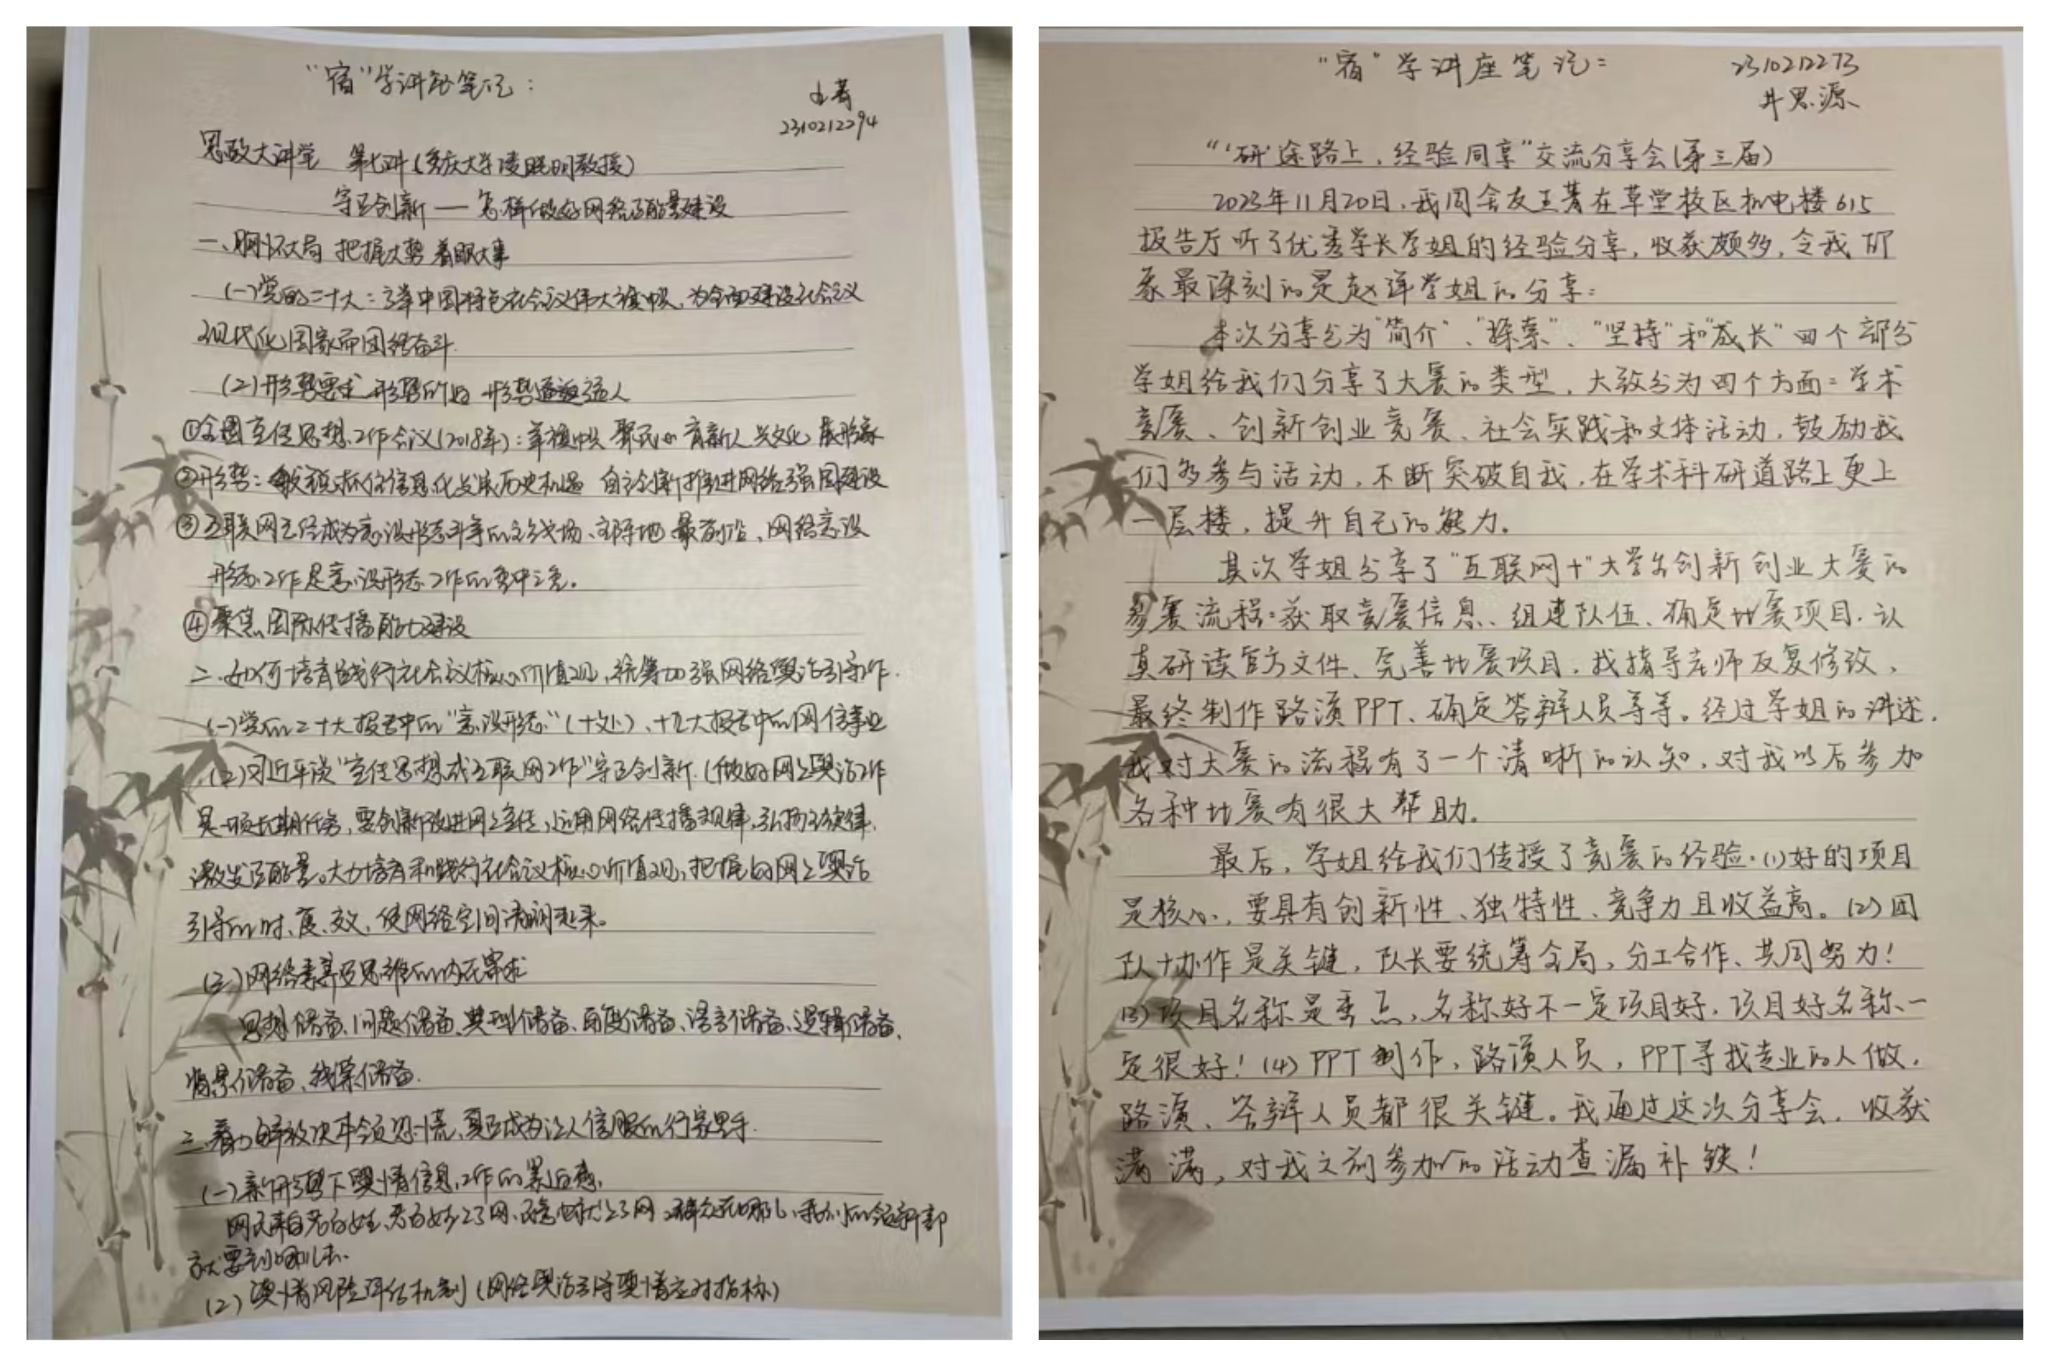 “宿”学讲座笔记：
王菁
2310212294
思政大讲堂 第七讲（重庆大学凌晓明教授）
守正创新——怎样做好网络正能量建设
一、胸怀大局 把握大势 着眼大事
(一)党的二十大：高举中国特色社会主义伟大旗帜，为全面建设社会主义
现代化国家而团结奋斗.
(二)形势要求 形势所迫 形势逼人
①全国宣传思想工作会议(2018年)：举旗帜 聚民心 育新人 兴文化 展形象
②形势：敏锐抓住信息化发展历史机遇 自主创新推进网络强国建设
③互联网已经成为意识形态斗争的主战场、主阵地、最前沿，网络意识
形态工作是意识形态工作的重中之重。
④聚焦国际传播能力建设
二、如何培育践行社会主义核心价值观，统筹加强网络舆论引导工作.
(一)党的二十大报告中的“意识形态”（十处）、十九大报告中的网信事业
(二)习近平谈“宣传思想或互联网工作”守正创新.（做好网上舆论工作
是一项长期任务，要创新改进网上宣传，运用网络传播规律，弘扬主旋律，
激发正能量。大力培育和践行社会主义核心价值观，把握好网上舆论
引导的时、度、效，使网络空间清朗起来。
(三)网络素养及思维的内在需求
思想储备、问题储备、典型储备、 储备、语言储备、逻辑储备、
背景储备、线索储备.
三、着力解决本领恐慌，真正成为让人信服的行家里手.
(一)新形势下舆情信息工作的紧迫感.
网民来自老百姓，老百姓上了网，民意也就上了网。群众在哪儿，我们的领导干部
就要到哪儿去.
(二)舆情风险评估机制（网络舆论引导舆情应对指标）
“宿”学讲座笔记：
2310212273
井思源
“‘研’途路上，经验同享”交流分享会(第三届)
2023年11月20日，我同舍友王菁在草堂校区机电楼615
报告厅听了优秀学长学姐的经验分享，收获颇多，令我印
象最深刻的是赵 学姐的分享：
本次分享分为“简介”、“探索”、“坚持”和“成长”四个部分
学姐给我们分享了大赛的类型，大致分为四个方面：学术
竞赛、创新创业竞赛、社会实践和文体活动，鼓励我
们多参与活动，不断突破自我，在学术科研道路上更上
一层楼，提升自己的能力。
其次学姐分享了“互联网＋”大学生创新创业大赛的
参赛流程：获取竞赛信息、组建队伍、确定比赛项目、认
真研读官方文件、完善比赛项目，找指导老师反复修改，
最终制作路演PPT、确定答辩人员等等。经过学姐的讲述，
我对大赛的流程有了一个清晰的认知，对我以后参加
各种比赛有很大帮助。
最后，学姐给我们传授了竞赛的经验.(1)好的项目
是核心，要具有创新性、独特性、竞争力且收益高。(2)团
队协作是关键，队长要统筹全局，分工合作、共同努力！
(3)项目名称是重点，名称好不一定项目好，项目好名称一
定很好！(4)PPT制作，路演人员，PPT寻找专业的人做，
路演、答辩人员都很关键。我通过这次分享会，收获
满满，对我之前参加的活动查漏补缺！